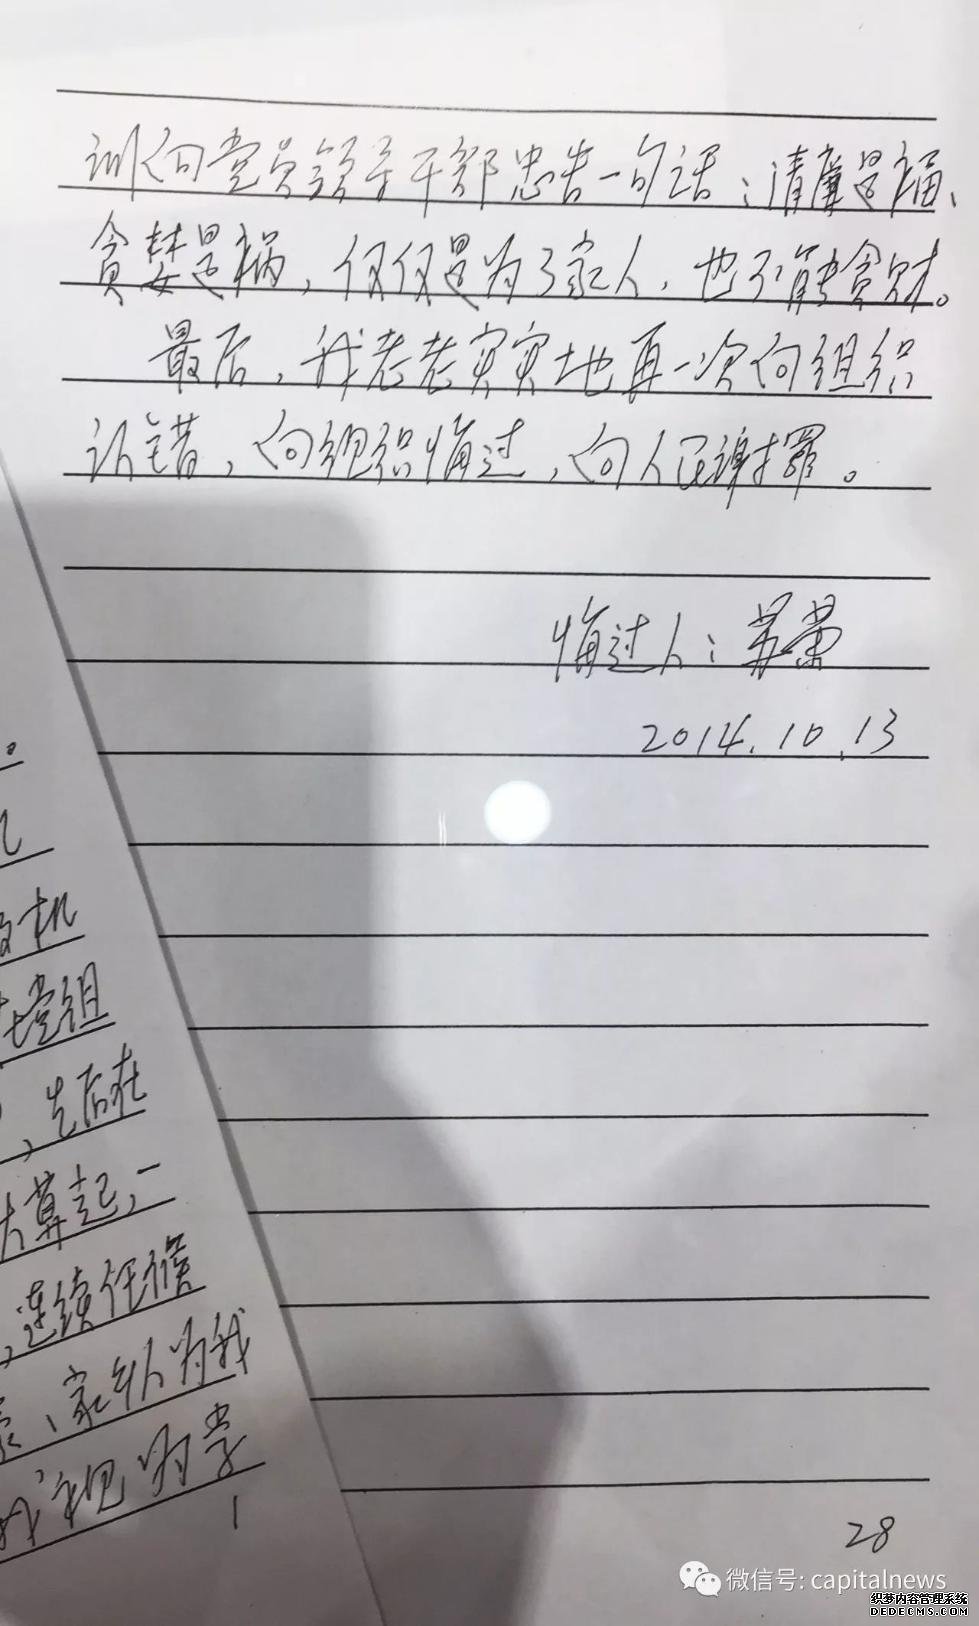 训向党员领导干部忠告一句话：清廉是福、
贪婪是祸，仅仅是为了家人，也不能贪财。
最后，我老老实实地再一次向组织
认错，向组织悔过，向人民谢罪。
悔过人：苏荣
2014.10.13
机
党组
，先后在
算起，一
连续任
、家人为我
我视为掌
1
28
微信号: capitalnews
织梦内容管理系统
DEDECMS.COM